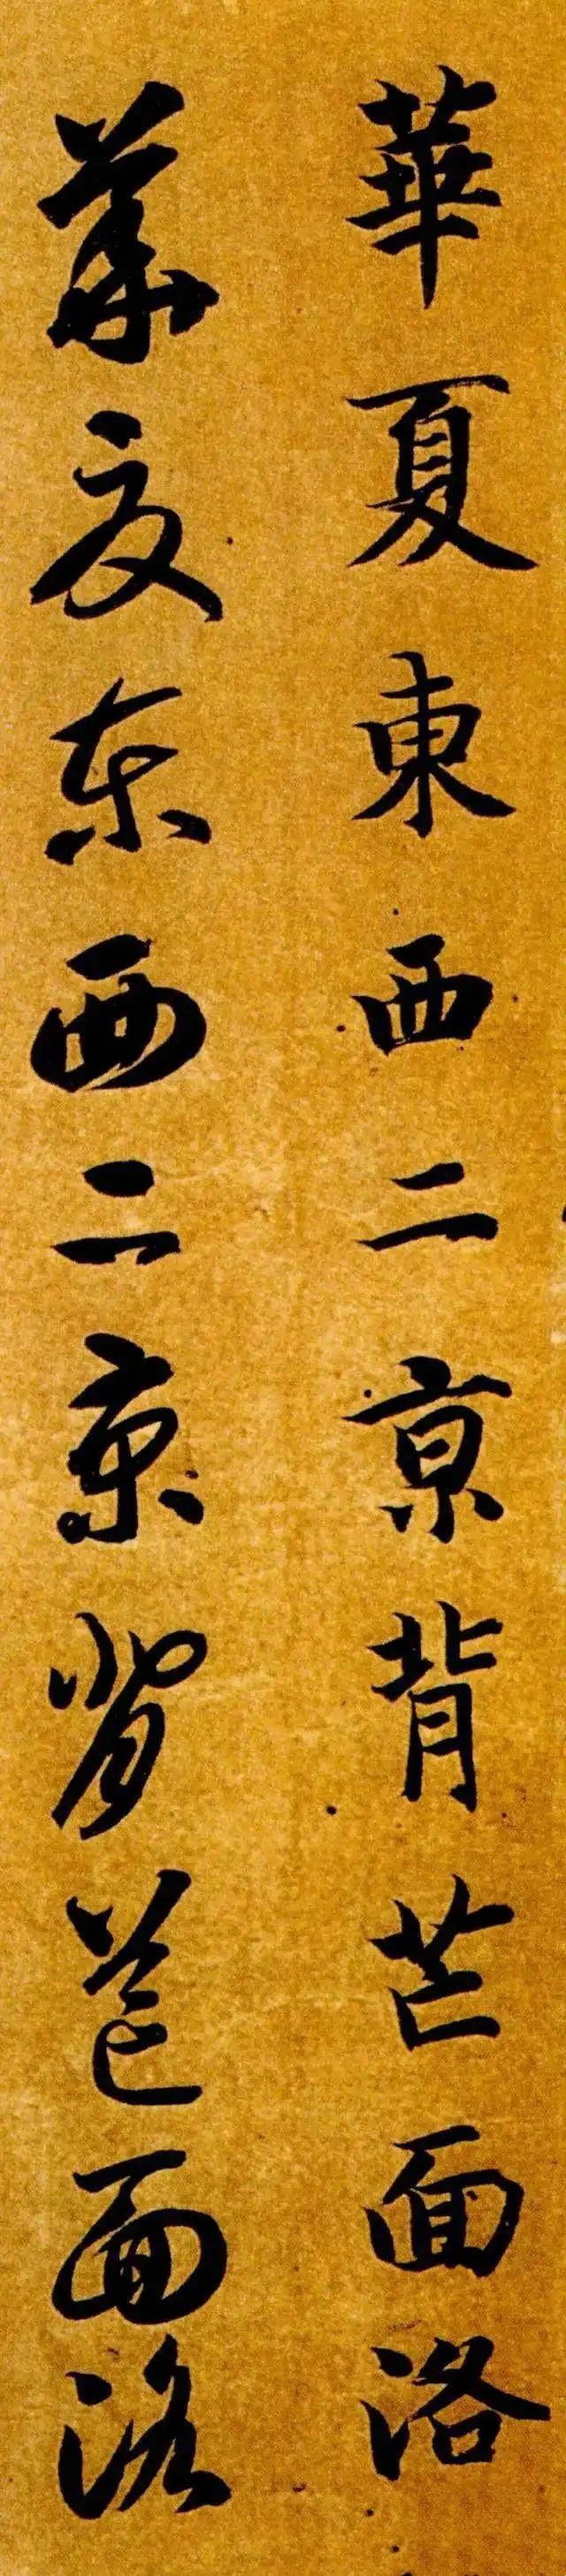 華夏東西二京背芒面洛
華夏東西二京背芒面洛